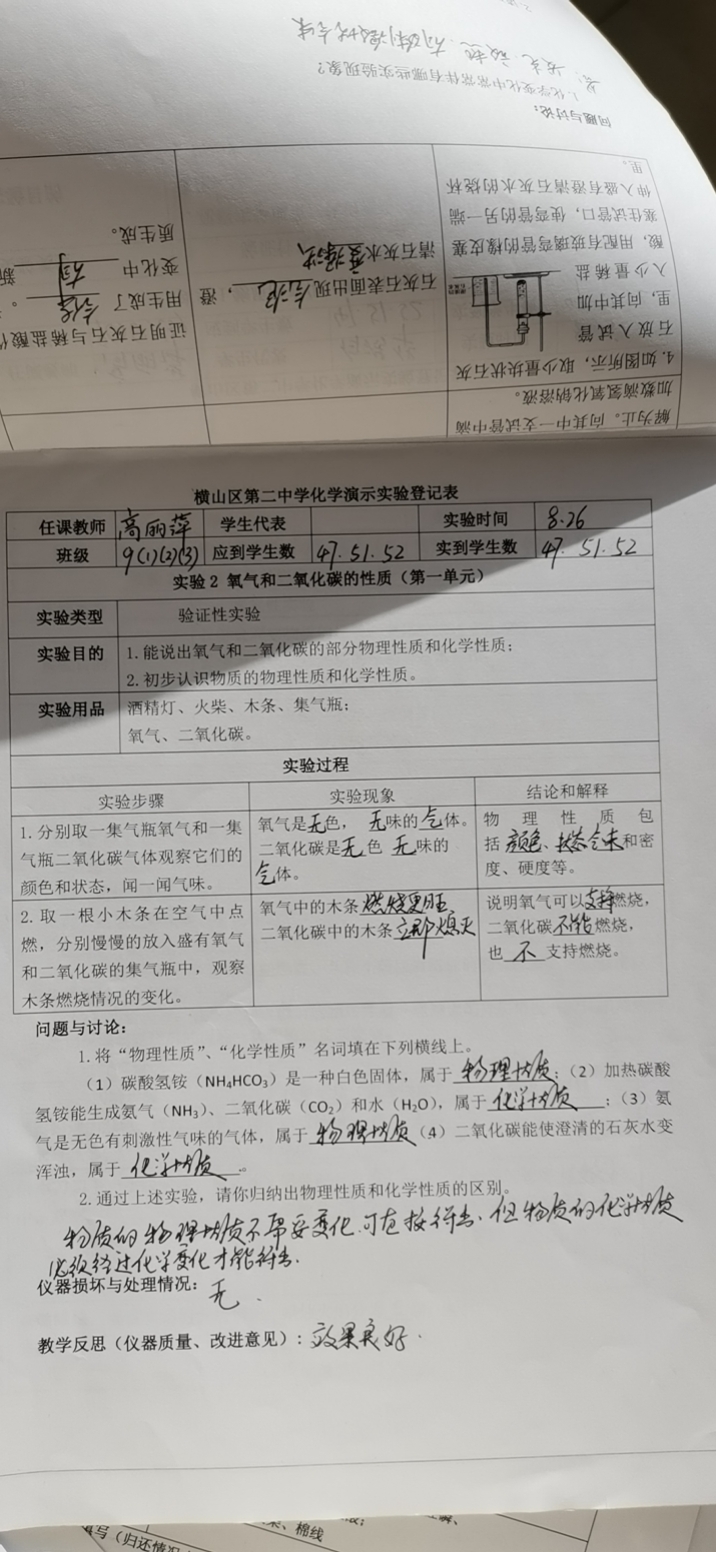 横山区第二中学化学演示实验登记表
任课教师 高丽萍 学生代表 实验时间 8.26
班级 9(1)(2)(3) 应到学生数 47. 51. 52 实到学生数 47. 51. 52
实验2 氧气和二氧化碳的性质（第一单元）
实验类型 验证性实验
实验目的 1.能说出氧气和二氧化碳的部分物理性质和化学性质；
2.初步认识物质的物理性质和化学性质。
实验用品 酒精灯、火柴、木条、集气瓶；
氧气、二氧化碳。
实验过程
实验步骤 实验现象 结论和解释
1.分别取一集气瓶氧气和一集
气瓶二氧化碳气体观察它们的
颜色和状态，闻一闻气味。
氧气是无色，无味的气体。
二氧化碳是无色 无味的
气体。
物理性质包
括颜色、状态气味和密
度、硬度等。
2.取一根小木条在空气中点
燃，分别慢慢的放入盛有氧气
和二氧化碳的集气瓶中，观察
木条燃烧情况的变化。
氧气中的木条燃烧更旺、
二氧化碳中的木条立即熄灭
说明氧气可以支持燃烧，
二氧化碳不能燃烧，
也 不 支持燃烧。
问题与讨论：
1.将“物理性质”、“化学性质”名词填在下列横线上。
（1）碳酸氢铵（NH₄HCO₃）是一种白色固体，属于 物理性质；（2）加热碳酸
氢铵能生成氨气（NH₃）、二氧化碳（CO₂）和水（H₂O），属于 化学性质 ；（3）氨
气是无色有刺激性气味的气体，属于 物理性质（4）二氧化碳能使澄清的石灰水变
浑浊，属于 化学性质 。
2.通过上述实验，请你归纳出物理性质和化学性质的区别。
物质的物理性质不需要变化.可直接得出.但物质的化学性质
必须经过化学变化才能得出.
仪器损坏与处理情况：无.
教学反思（仪器质量、改进意见）：效果良好.
解为止。向其中一支试管中滴
加数滴氢氧化钠溶液。
4.如图所示，取少量块状石灰
石放入试管
里，向其中加
入少量稀盐
酸，用配有玻璃弯管的橡皮塞
塞住试管口，使弯管的另一端
伸入盛有澄清石灰水的烧杯
里。
石灰石表面出现气泡，澄
清石灰水变浑浊
证明石灰石与稀盐酸
用生成了 气体 。
变化中 有 新
质生成。
问题与讨论：
1.化学变化中常伴有哪些实验现象？
写（归还情况
、棉线